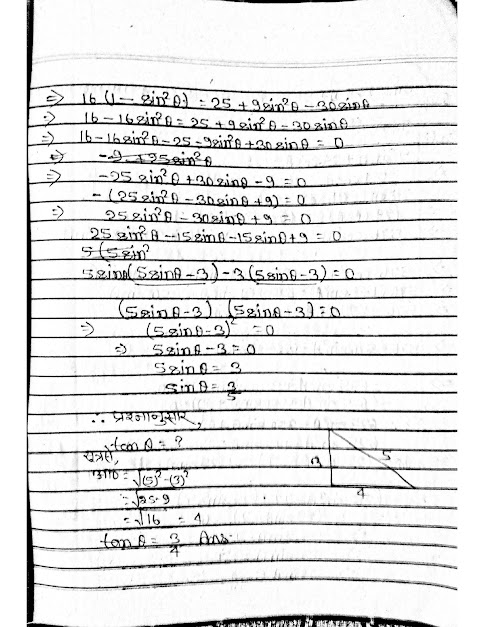 => 16 (1 - sin²θ) = 25 + 9sin²θ - 30sinθ
=> 16 - 16sin²θ = 25 + 9sin²θ - 30sinθ
=> 16 - 16sin²θ - 25 - 9sin²θ + 30sinθ = 0
=> -9 + 25sin²θ
=> -25 sin²θ + 30sinθ - 9 = 0
- (25sin²θ - 30sinθ + 9) = 0
=> 25 sin²θ - 30sinθ + 9 = 0
25 sin²θ - 15sinθ - 15sinθ + 9 = 0
5 (5 sin²
5sinθ (5sinθ - 3) - 3 (5sinθ - 3) = 0
(5sinθ - 3) (5sinθ - 3) = 0
=> (5sinθ - 3)² = 0
=> 5sinθ - 3 = 0
5sinθ = 3
sinθ = 3/5
∴ प्रश्नानुसार,
tanθ = ?
सूत्र से,
आ0 = √(5)² - (3)²
= √25 - 9
= √16 = 4
tanθ = 3/4 Ans.
3
5
4